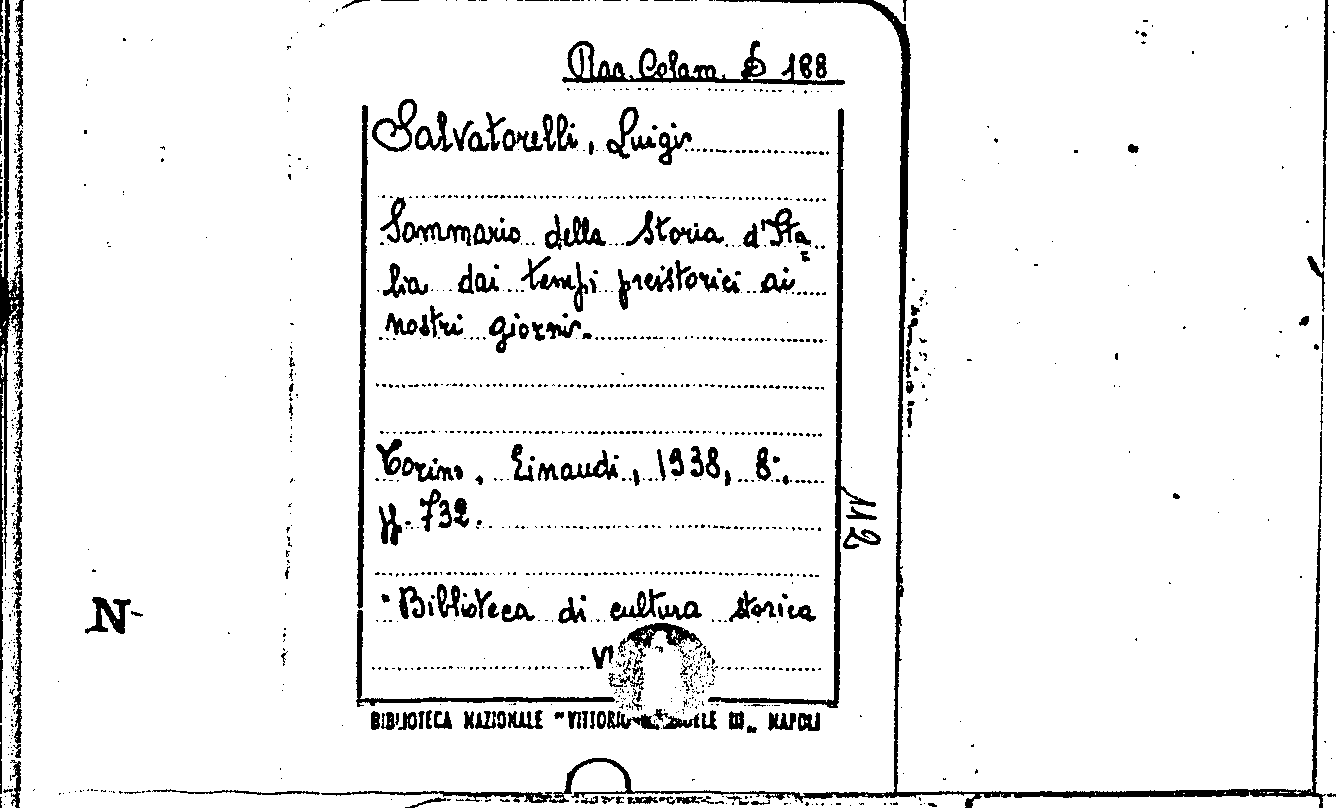 Rac. Colam. B 188
Salvatorelli, Luigi
Sommario della Storia d'Ita=
lia dai tempi preistorici ai
nostri giorni.
Torino, Einaudi, 1938, 8°,
pp. 732.
"Biblioteca di cultura storica
VI
BIBLIOTECA NAZIONALE "VITTORIO EMANUELE III„ NAPOLI
112
N-